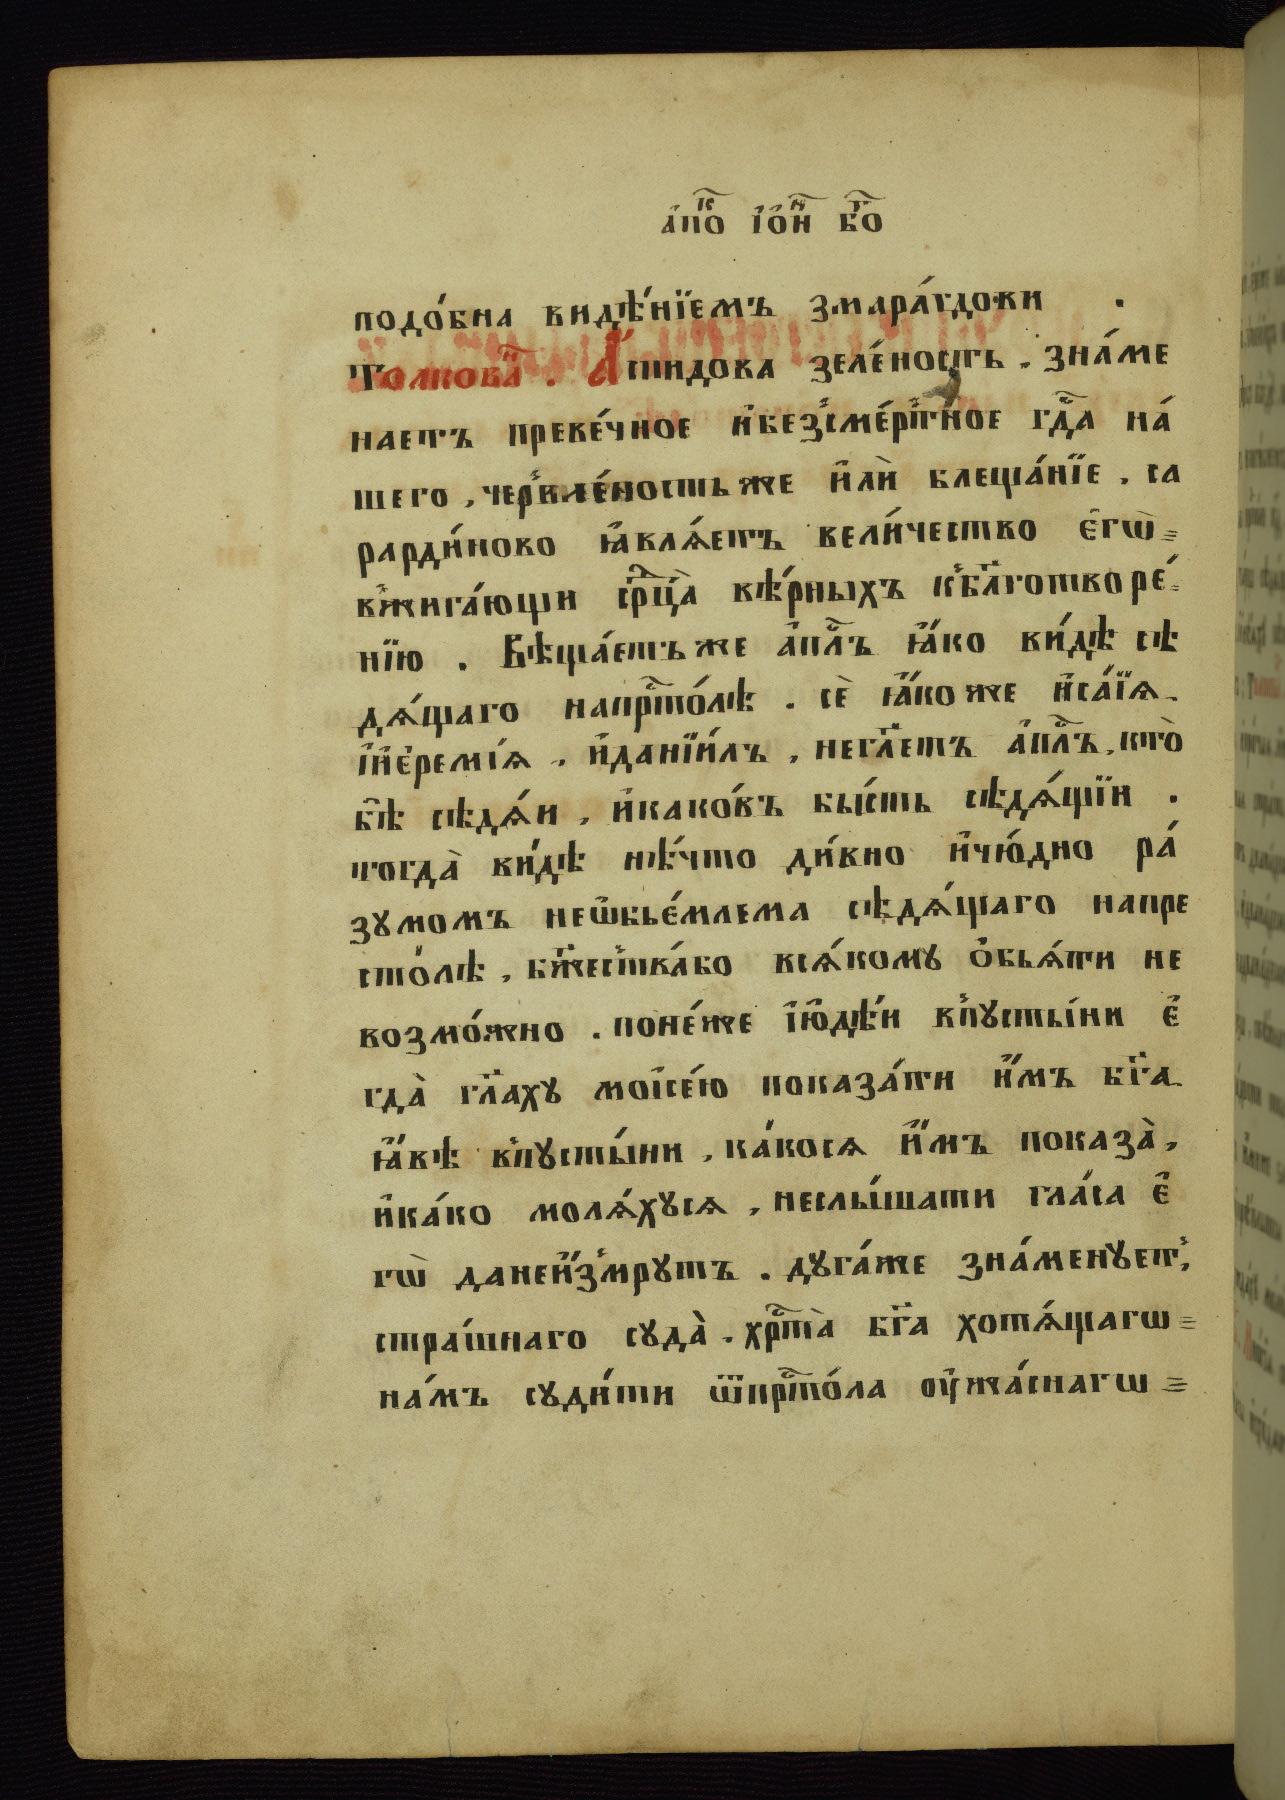 а҆пⷦ҇о і҆ѡ҆ⷩ҇н бⷢ҇о
подо́бна видѣ́нїемъ змара́гдови .
Толковаⷩ҇ . А҆спидова зеле́ность . зна́ме
наетъ превѣ́чное и҆безсме́ртное гдⷭ҇а на́
шего , червле́ностьже и҆лѝ блеща́нїе . са
рарди́ново ꙗ҆влѧ́етъ вели́чество є҆гѡ̀
вжига́ющи срⷣца̀ вѣ́рныхъ кбл҃готворе́
нїю . Вѣща́етъже а҆пⷭ҇лъ ꙗ҆́ко ви́дѣ сѣ
дѧ́щаго напрⷭ҇то́лѣ . сѐ ꙗ҆́коже и҆са́їѧ
і҆и҆є҆реми́ѧ , и҆данїи́лъ , негл҃етъ а҆пⷭ҇лъ , кто̀
бѣ̀ сѣдѧ́и , и҆како́въ бы́сть сѣдѧ́щїи .
тогда̀ ви́дѣ нѣ́что ди́вно и҆чю́дно ра́
зумомъ неѡ҆бье́млема сѣдѧ́щаго напре
сто́лѣ , бж҃ества́бо всѧ́кому ѻ҆бьѧ́ти не
возмо́жно . поне́же і҆ю҆дѣ́и впусты́ни є҆
гда̀ гл҃аху мѡѷсе́ю показа́ти и҆́мъ бг҃а
ꙗ҆́вѣ впусты́ни , ка́косѧ и҆́мъ показа̀ ,
и҆ка́ко молѧ́хусѧ , неслы́шати гла́са є҆
гѡ̀ данеи́змрутъ . дуга́же зна́менует ,
стра́шнаго суда̀ . хрⷭ҇та̀ бг҃а хотѧ́щагѡ
на́мъ суди́ти ѿпрⷭ҇то́ла ᲂу҆жа́снагѡ